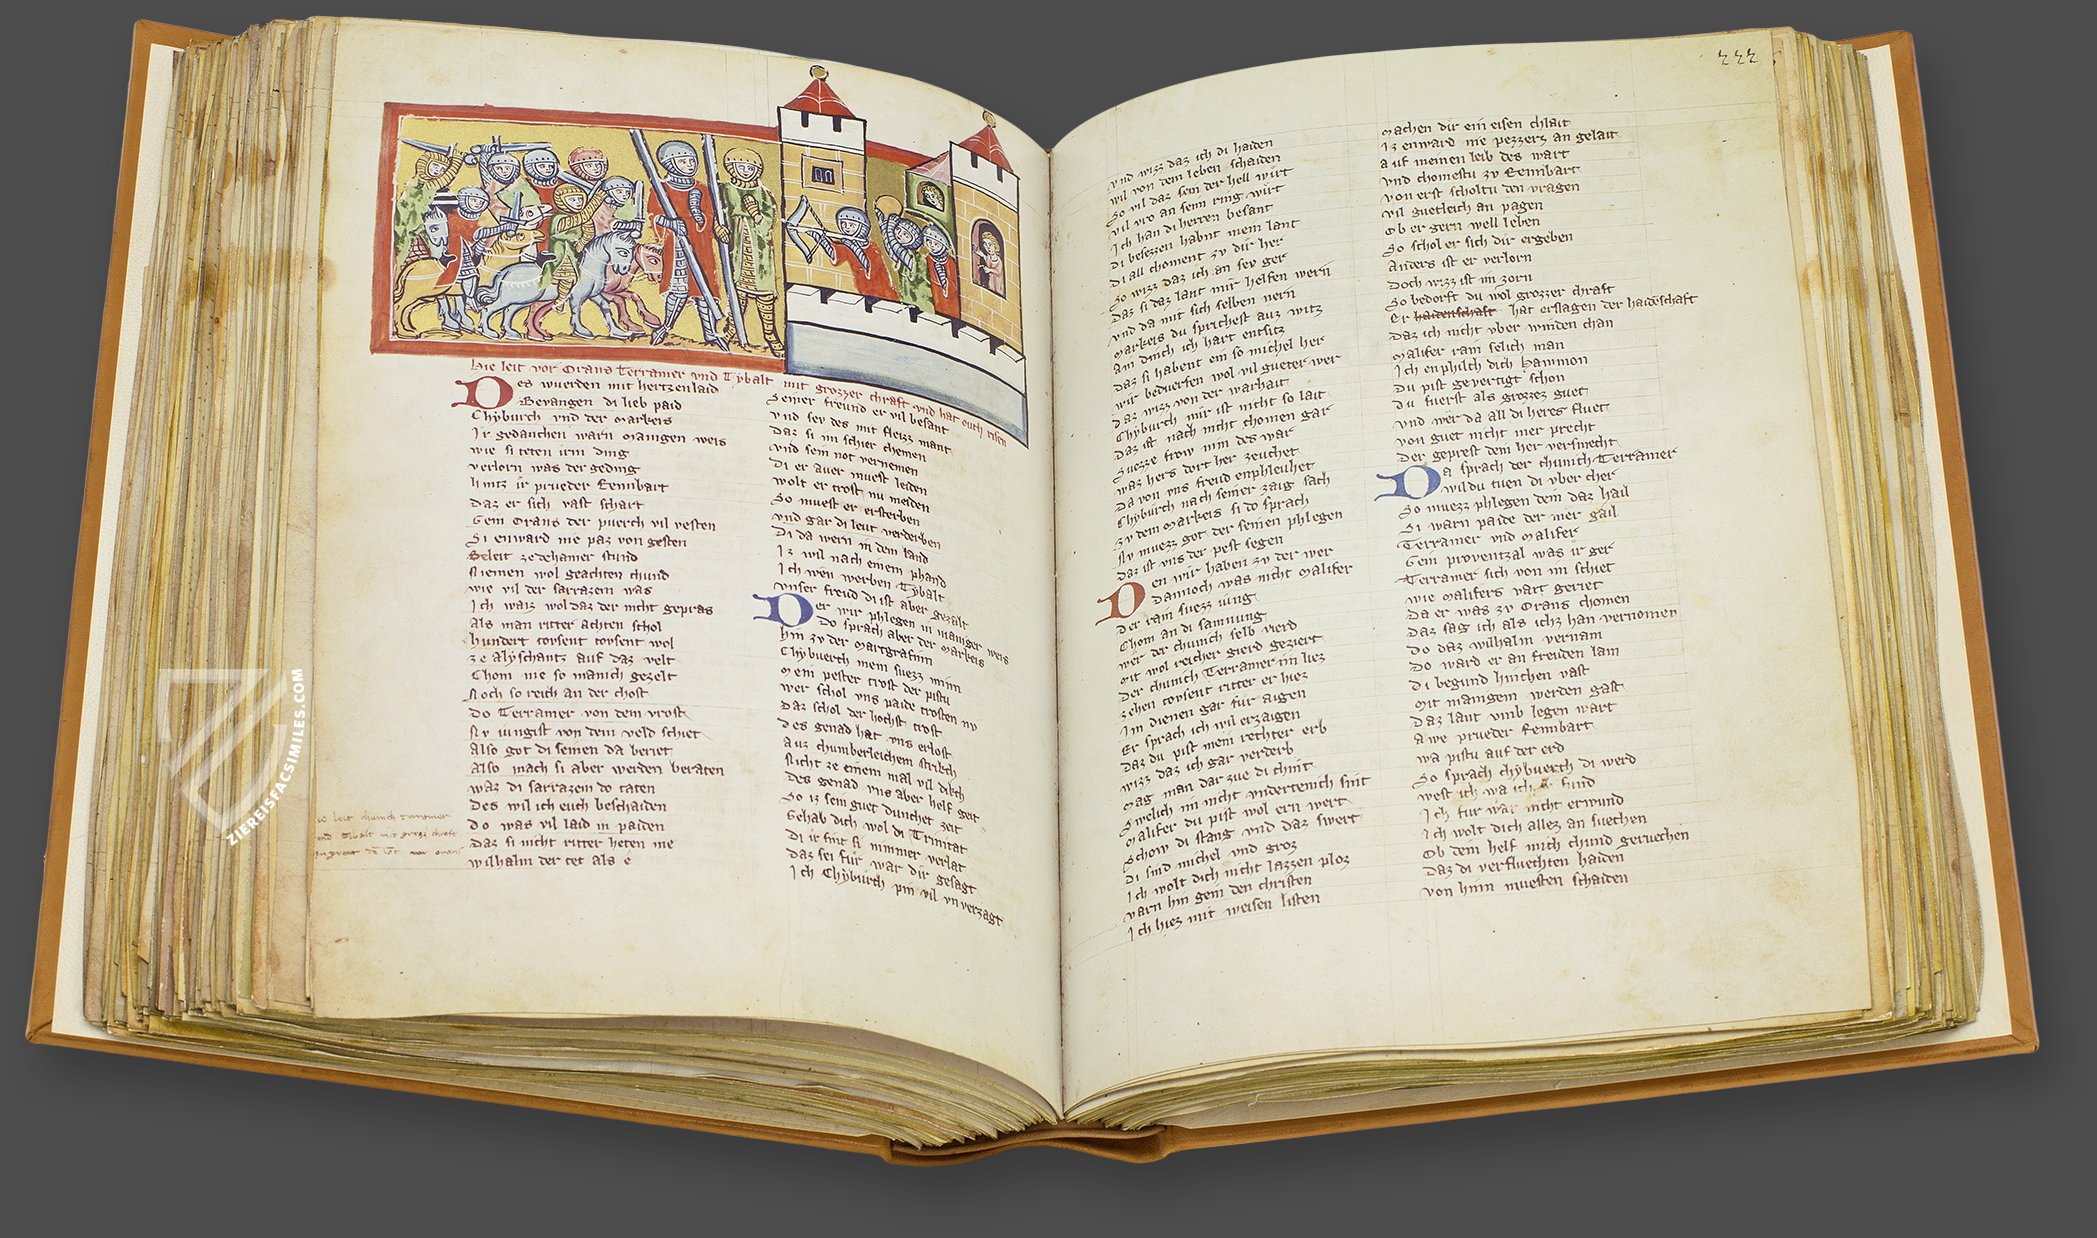 Hie leit vor Orans Terramer vnd Tybalt mit grozzer chraft vnd hat ouch risen
Des wuerden mit hertzenlaid
Bevangen di lieb paid
Chyburch vnd der Markeis
Ir gedanchen warn manigen weis
wie si teten irm ding
verlorn was der geding
hintz ir prueder Rennbart
Daz er sich vast schart
Gein Orans der puerch vil vesten
Si enward nie paz von gesten
Beleit ze dehainer stund
Niemen wol geachten chund
wie vil der sarrazein was
Ich waiz wol daz der nicht gepras
Als man ritter achten schol
hundert tovsent tovsent wol
ze Alyschantz auf daz velt
Chom nie so manich gezelt
Noch so reich an der chost
Do Terramer von dem vrost
Ny iungist von dem veld schiet
Also got di seinen da beriet
Also mach si aber werden beraten
waz di sarrazein do taten
Des wil ich euch beschaiden
Do was vil laid in paiden
Daz si nicht ritter heten me
wilhalm der tet als e
Seiner freund er vil besant
vnd sey des mit fleizz mant
Daz si im schier chemen
vnd sein not vernemen
Di er aver muest leiden
wolt er trost nu meiden
So muest er ersterben
vnd gar di leut verderben
Di da wern in dem land
Iz wil nach einem phand
Ich wen werben Tybalt
vnser freud di ist aber gezalt
Der wir phlegen in maniger weis
Do sprach aber der Markeis
hin zv der Martgrafinn
Chybuerch mein suezz minn
Mein pester trost der pistu
wer schol vns paide trosten nv
Daz schol der hochst trost
Des genad hat vns erlost
Auz chumberleichem strikch
Nicht ze einem mal vil dikch
Des genad vns aber helf geit
So iz sein guet dunchet zeit
Gehab dich wol di Trinitat
Di ir sint si nimmer verlat
Daz sei fur war dir gesagt
Ich Chyburch pin vil vnverzagt
ZIEREISFACSIMILES.COM
222
vnd wizz daz ich di haiden
wil von dem leben schaiden
So vil daz sein der hell wirt
vil vro an seim ring wirt
Ich han di herren besant
Di besezzen habnt mein lant
Di all choment zv dir her
So wizz daz ich an sey ger
Daz si daz lant mir helfen wern
vnd da mit sich selben nern
Markeis du sprichest auz witz
Am dinch ich hart entsitz
Daz si habent ein so michel her
wir beduerfen wol vil gueter wer
Daz wizz von der warhait
Chyburch mir ist nicht so lait
Daz ist nach nicht chomen gar
Suezze frow nim des war
waz hers dort her zeuchet
Da von vns freud enphleuhet
Chyburch nach seiner zaig sach
zv dem Markeis si do sprach
Nv muezz got der seinen phlegen
Daz ist vns der pest segen
Den wir haben zv der wer
Dannoch was nicht Malifer
Der rain suezz iung
Chom an di samnung
wer der chunich selb vierd
Mit wol reicher gierd geziert
Der chunich Terramer im liez
zehen tovsent ritter er hiez
Im dienen gar fur aigen
Er sprach ich wil erzaigen
Daz du pist mein rechter erb
wizz daz ich gar verderb
Mag man dar zue di chint
Swelich mir nicht vndertenich sint
Malifer du pist wol ern wert
Schow di stang vnd daz swert
Di sind michel vnd groz
Ich wolt dich nicht lazzen ploz
varn hin gein den christen
Ich hiez mit weisen listen
Machen dir ein eisen chlait
Iz enward nie pezzers an gelait
Auf meinen leib des wart
vnd chomestu zv Rennbart
von erst scholtu den vragen
vil guetleich an pagen
Ob er gern well leben
So schol er sich dir ergeben
Anders ist er verlorn
Doch wizz ist im zorn
So bedorft du wol grozzer chraft
Er haidenschaft hat erslagen der haidenschaft
Daz ich nicht vber winden chan
Malifer rain selich man
Ich enphilch dich hammon
Du pist gevertigt schon
Du fuerst als grozzez guet
vnd wer da all di heres fluet
von guet nicht mer precht
Der geprest dem her versmecht
Da sprach der chunich Terramer
wildu tuen di vber cher
So muezz phlegen dein daz hail
Si warn paide der mer gail
Terramer vnd Malifer
Gein proventzal was ir ger
Terramer sich von im schiet
wie Malifers vart geriet
Da er was zv Orans chomen
Daz sag ich als ichz han vernomen
Do daz wilhalm vernam
Do ward er an freuden lam
Di begund hinchen vast
Mit manigem werden gast
Daz lant vmb legen wart
Awe prueder Rennbart
wa pistu auf der erd
So sprach chybuerch di werd
west ich wa ich fund
Ich fur war nicht erwund
Ich wolt dich allez an suechen
Ob dein helf mich chund geruechen
Daz di verfluechten haiden
von hinn muesten schaiden